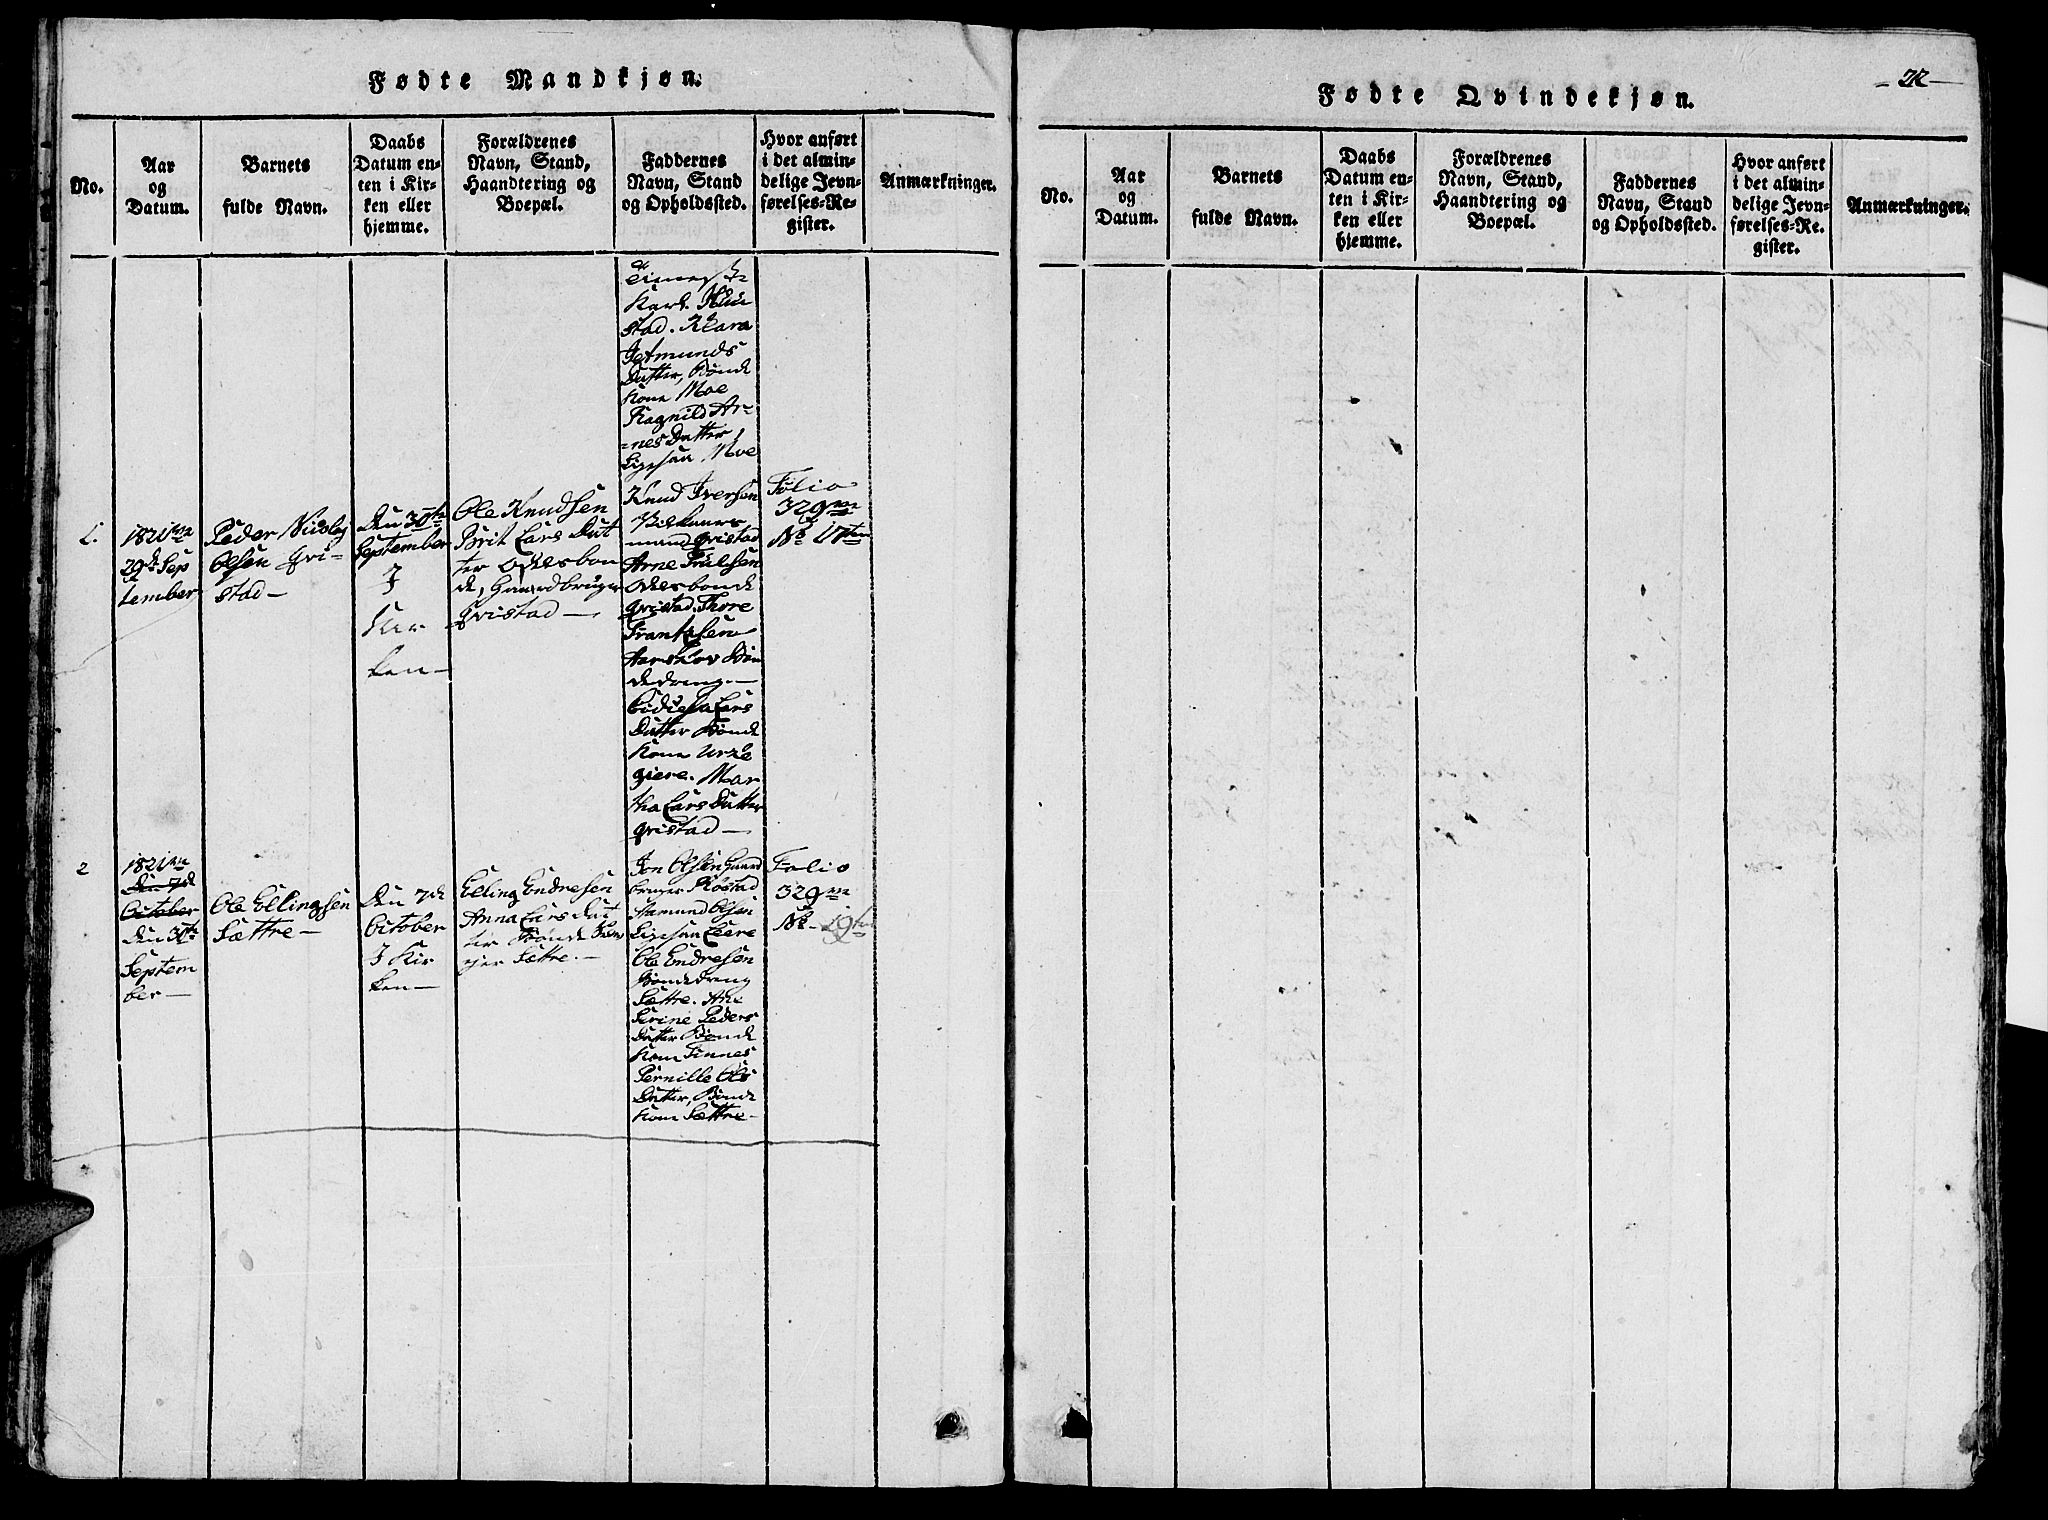 Fødte Mandkjøn.
No.
Aar
og
Datum.
Barnets
fulde Navn.
Daabs
Datum en-
ten i Kir-
ken eller
hjemme.
Forældrenes
Navn, Stand,
Haandtering og
Boepæl.
Faddernes
Navn, Stand
og Opholdssted.
Hvor anført
i det almin-
delige Jevn-
førelses-Re-
gister.
Anmærkninger.
Karl.
stad. Klara
Datter, Bonde
Kone Moe
Ragnild Ar-
=nes Datter
Ligesaa Moe
1.
1821
29de Sep
tember
Peder Nicolay
Olsen Qvi-
stad—
Den 30te
September
I
Kir
ken—
Ole Knudsen
Brit Lars Dat
ter Odelsbon
de, Gaardbruger
Qvistad—
Knud Iversen
mand Qvistad
Arne
Odelsbonde
Qvistad. Thore
Frantzsen
Bøn
dedreng.—
Lars
Datter Bonde
Kone
giere. Mar
tha Lars Datter
Qvistad—
Folio
329
No 17ten
2
1821
Den 7de
October
Den 30te
Septem
ber—
Ole Ellingsen
Sættre—
Den 7de
October
I Kir
ken—
Elling Endresen
Anna Lars Dat
ter Bønde
Sættre.—
Jon Olsen Gaard
bruger
Aamund Olsen
Ligesaa Leere
Ole Endresen
Bondedreng
Sættre.
Serine Peders
Datter Bonde
Kone Finnes
Pernille Ols
Datter, Bonde
Kone Sættre—
Folio
329
No 19
22
Fødte Qvindekjøn.
No.
Aar
og
Datum.
Barnets
fulde Navn.
Daabs
Datum en-
ten i Kir-
ken eller
hjemme.
Forældrenes
Navn, Stand,
Haandtering og
Boepæl.
Faddernes
Navn, Stand
og Opholdssted.
Hvor anført
i det almin-
delige Jevn-
førelses-Re-
gister.
Anmærkninger.